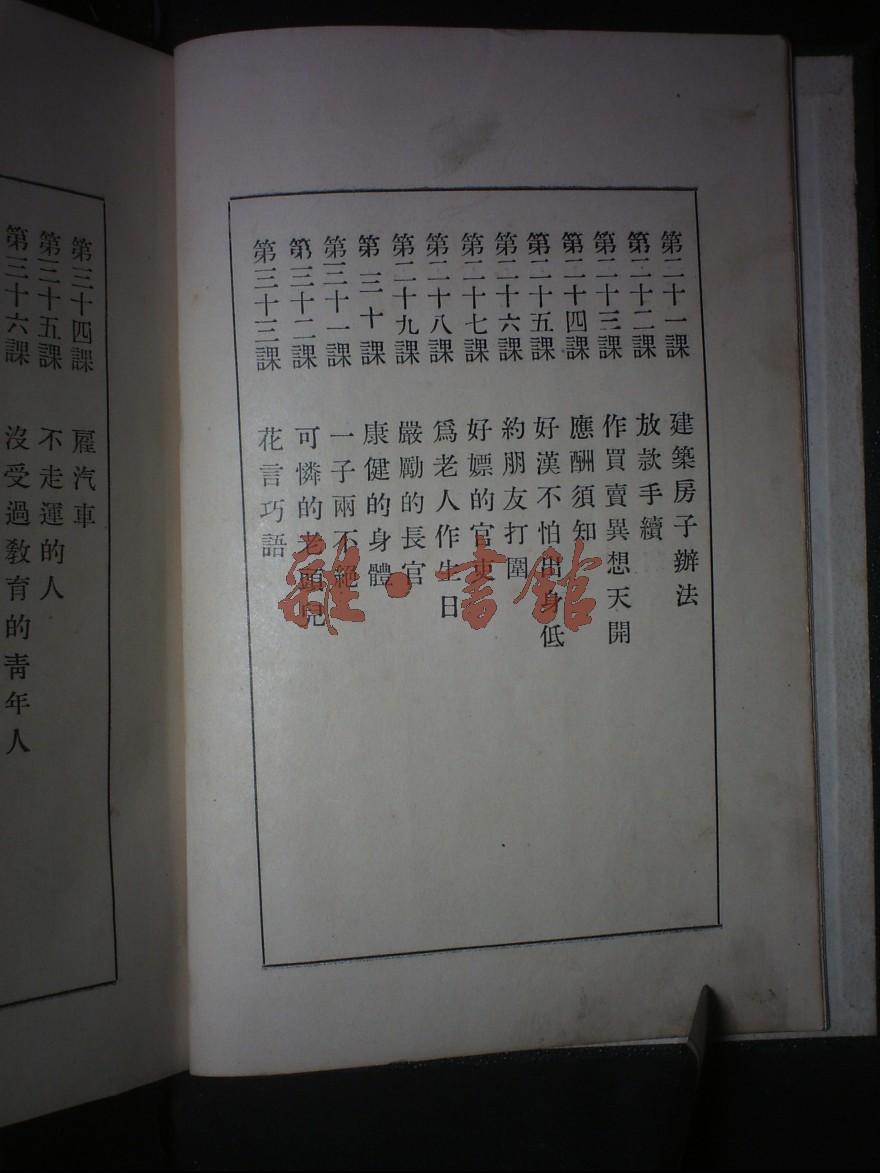 第二十一課 建築房子辦法
第二十二課 放款手續
第二十三課 作買賣異想天開
第二十四課 應酬須知
第二十五課 好漢不怕出身低
第二十六課 約朋友打圍
第二十七課 好嫖的官吏
第二十八課 爲老人作生日
第二十九課 嚴勵的長官
第三十課 康健的身體
第三十一課 一子兩不絕
第三十二課 可憐的老頭兒
第三十三課 花言巧語
第三十四課 雇汽車
第三十五課 不走運的人
第三十六課 沒受過敎育的靑年人
雜·書館